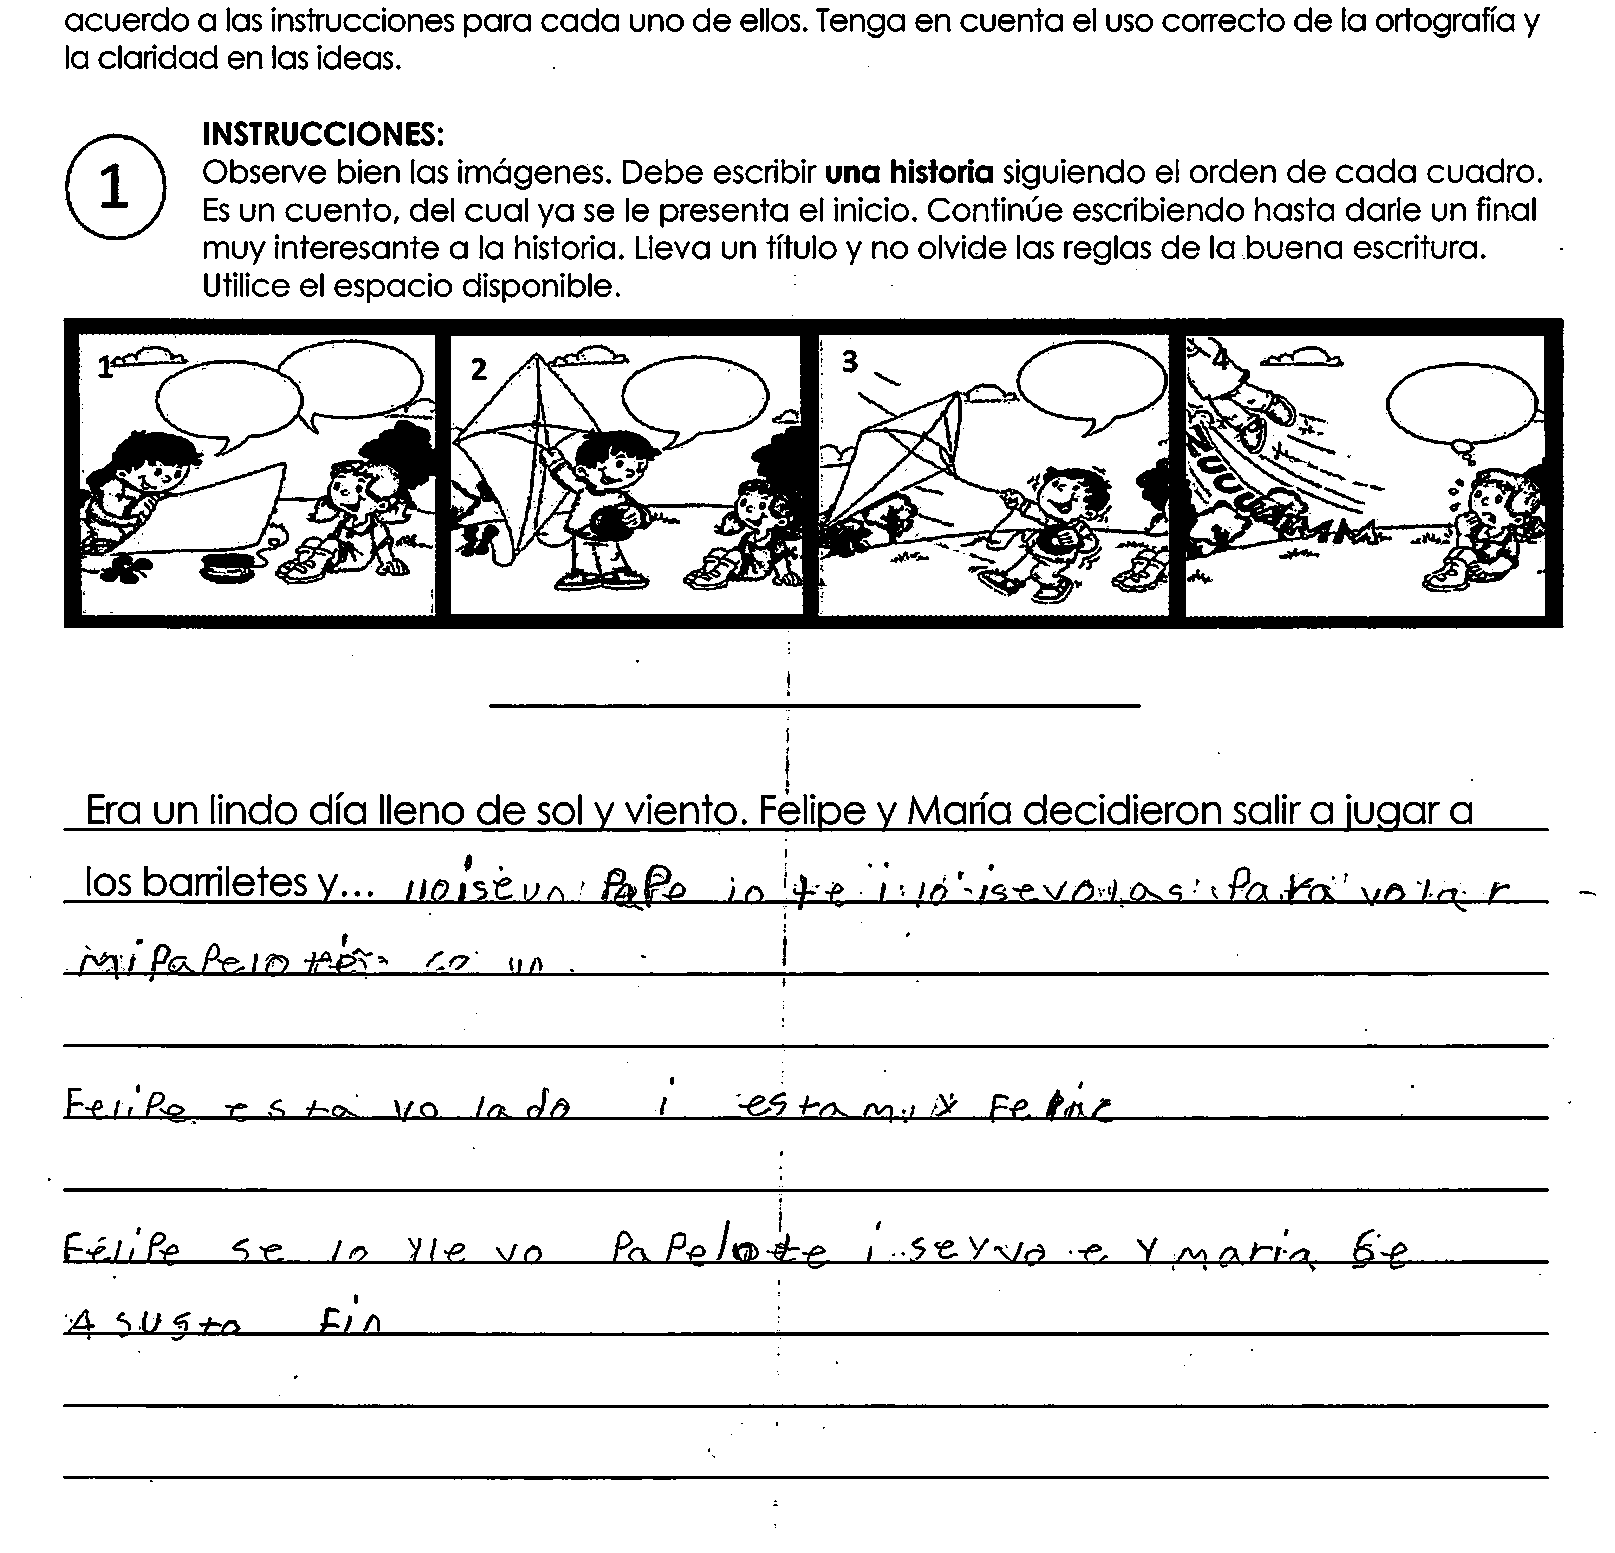 acuerdo a las instrucciones para cada uno de ellos. Tenga en cuenta el uso correcto de la ortografía y
la claridad en las ideas.
1
INSTRUCCIONES:
Observe bien las imágenes. Debe escribir una historia siguiendo el orden de cada cuadro.
Es un cuento, del cual ya se le presenta el inicio. Continúe escribiendo hasta darle un final
muy interesante a la historia. Lleva un título y no olvide las reglas de la buena escritura.
Utilice el espacio disponible.
1 2 3 4
ZUUUUMMM
Era un lindo día lleno de sol y viento. Felipe y María decidieron salir a jugar a
los barriletes y... Pape lo te para volar
mi papelo
Felipe esta vo lado i esta muy Felic
Felipe se lo lle vo Papelote i se y maria se
Asusto Fin